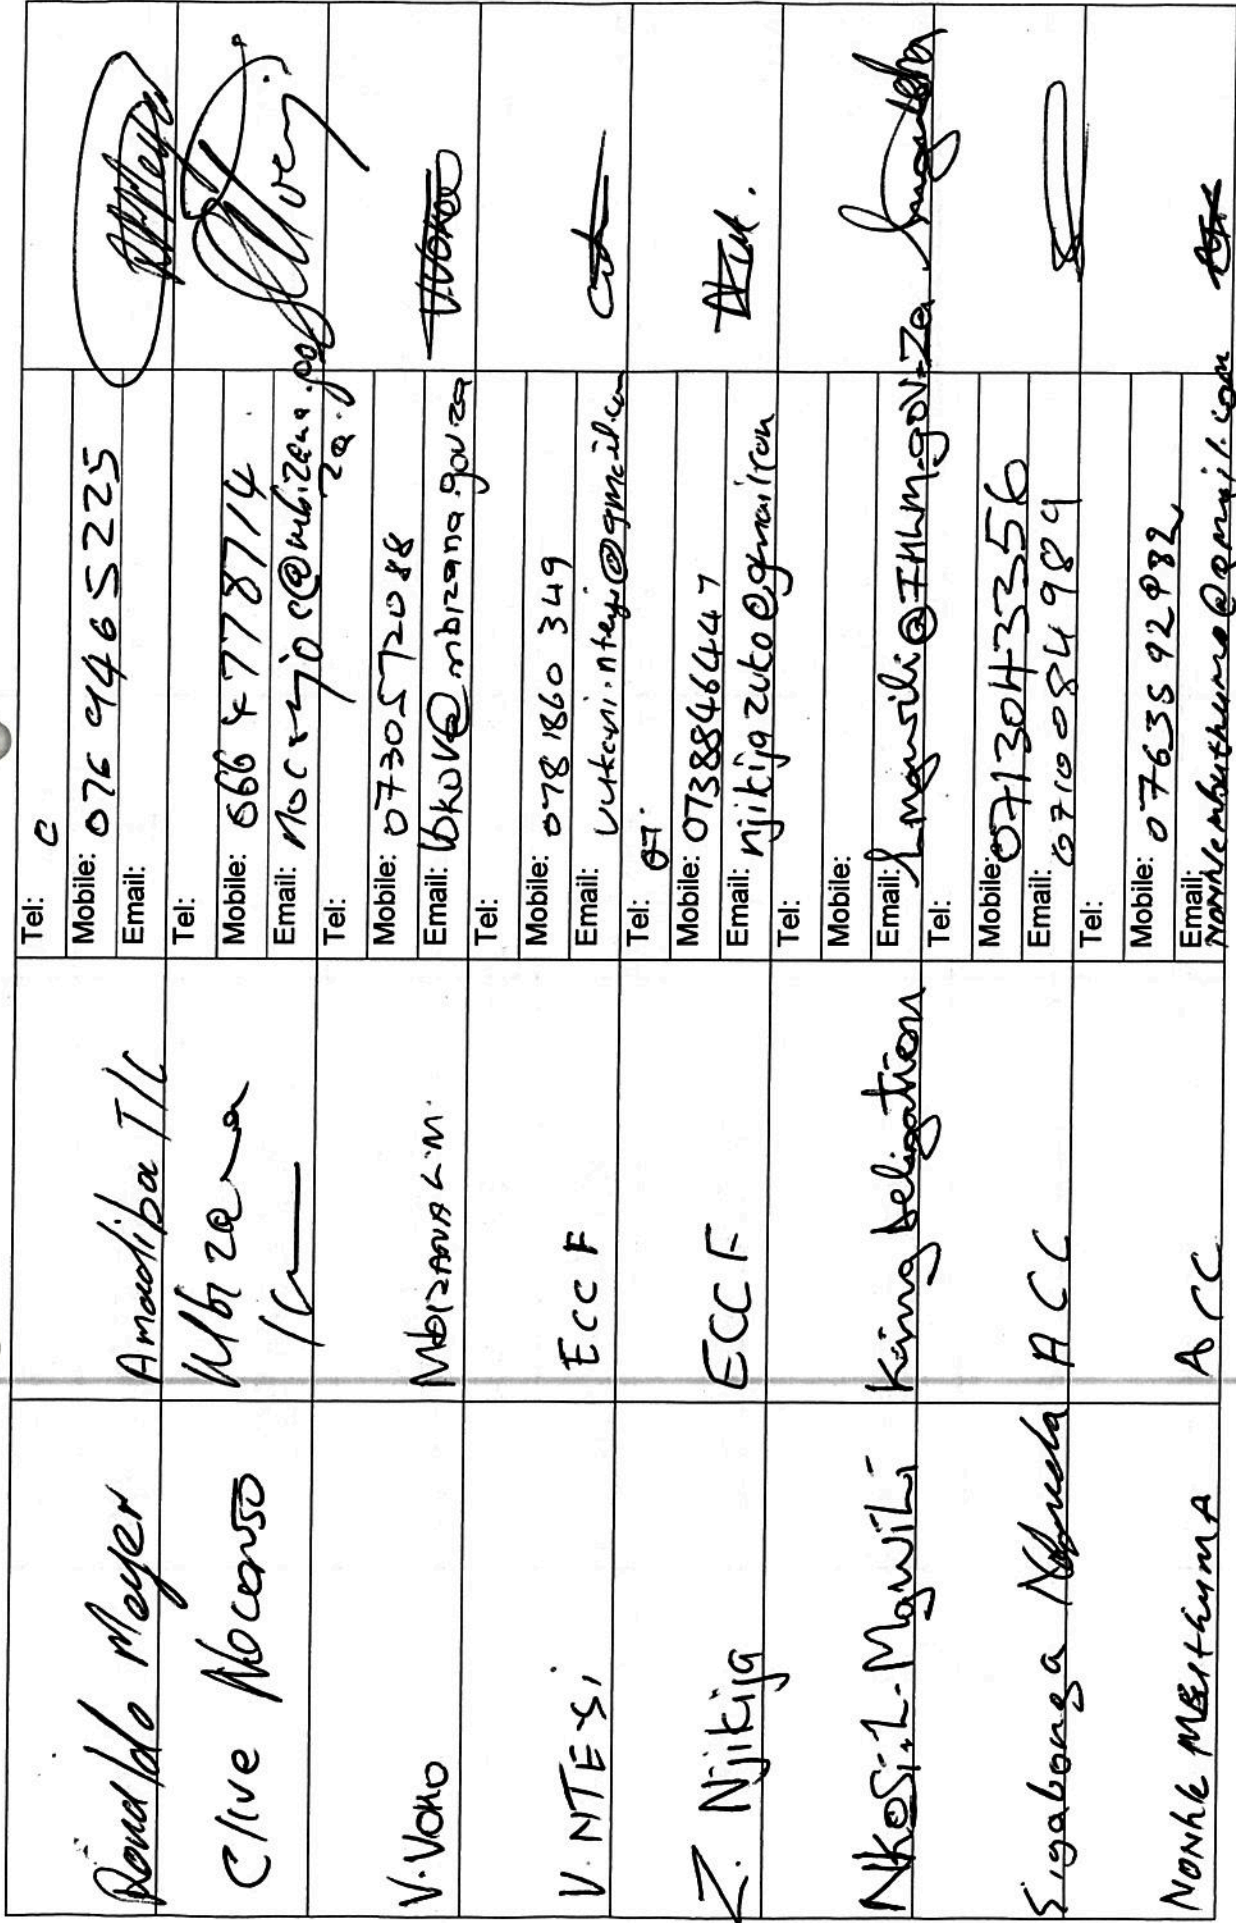 Ronaldo Meyer
Amadiba T/C
Tel: C
Mobile: 076 946 5225
Email:
Clive Nocanjo
Mbizana
Tel:
Mobile: 066 477 8714
Email: nocanjoc@mbizana.gov
za.
V. Voko
Mbizana L.M.
Tel:
Mobile: 0730572088
Email: VokoV@mbizana.gov.za
V. NTESi
ECC F
Tel:
Mobile: 078 1860 349
Email: vukani.nteyi@gmail.com
Z. Njikija
ECC F
Tel: 07
Mobile: 0738846447
Email: njikijazuko@gmail.com
NKOSi.L.MqwiLi
King Deligation
Tel:
Mobile:
Email: Lmqwili@IHLM.gov.za
Sigabonga
ACC
Tel:
Mobile: 0713043356
Email: 0710084989
Nonhle MButhuma
ACC
Tel:
Mobile: 0763592982
Email: nonhlembuthuma@gmail.com